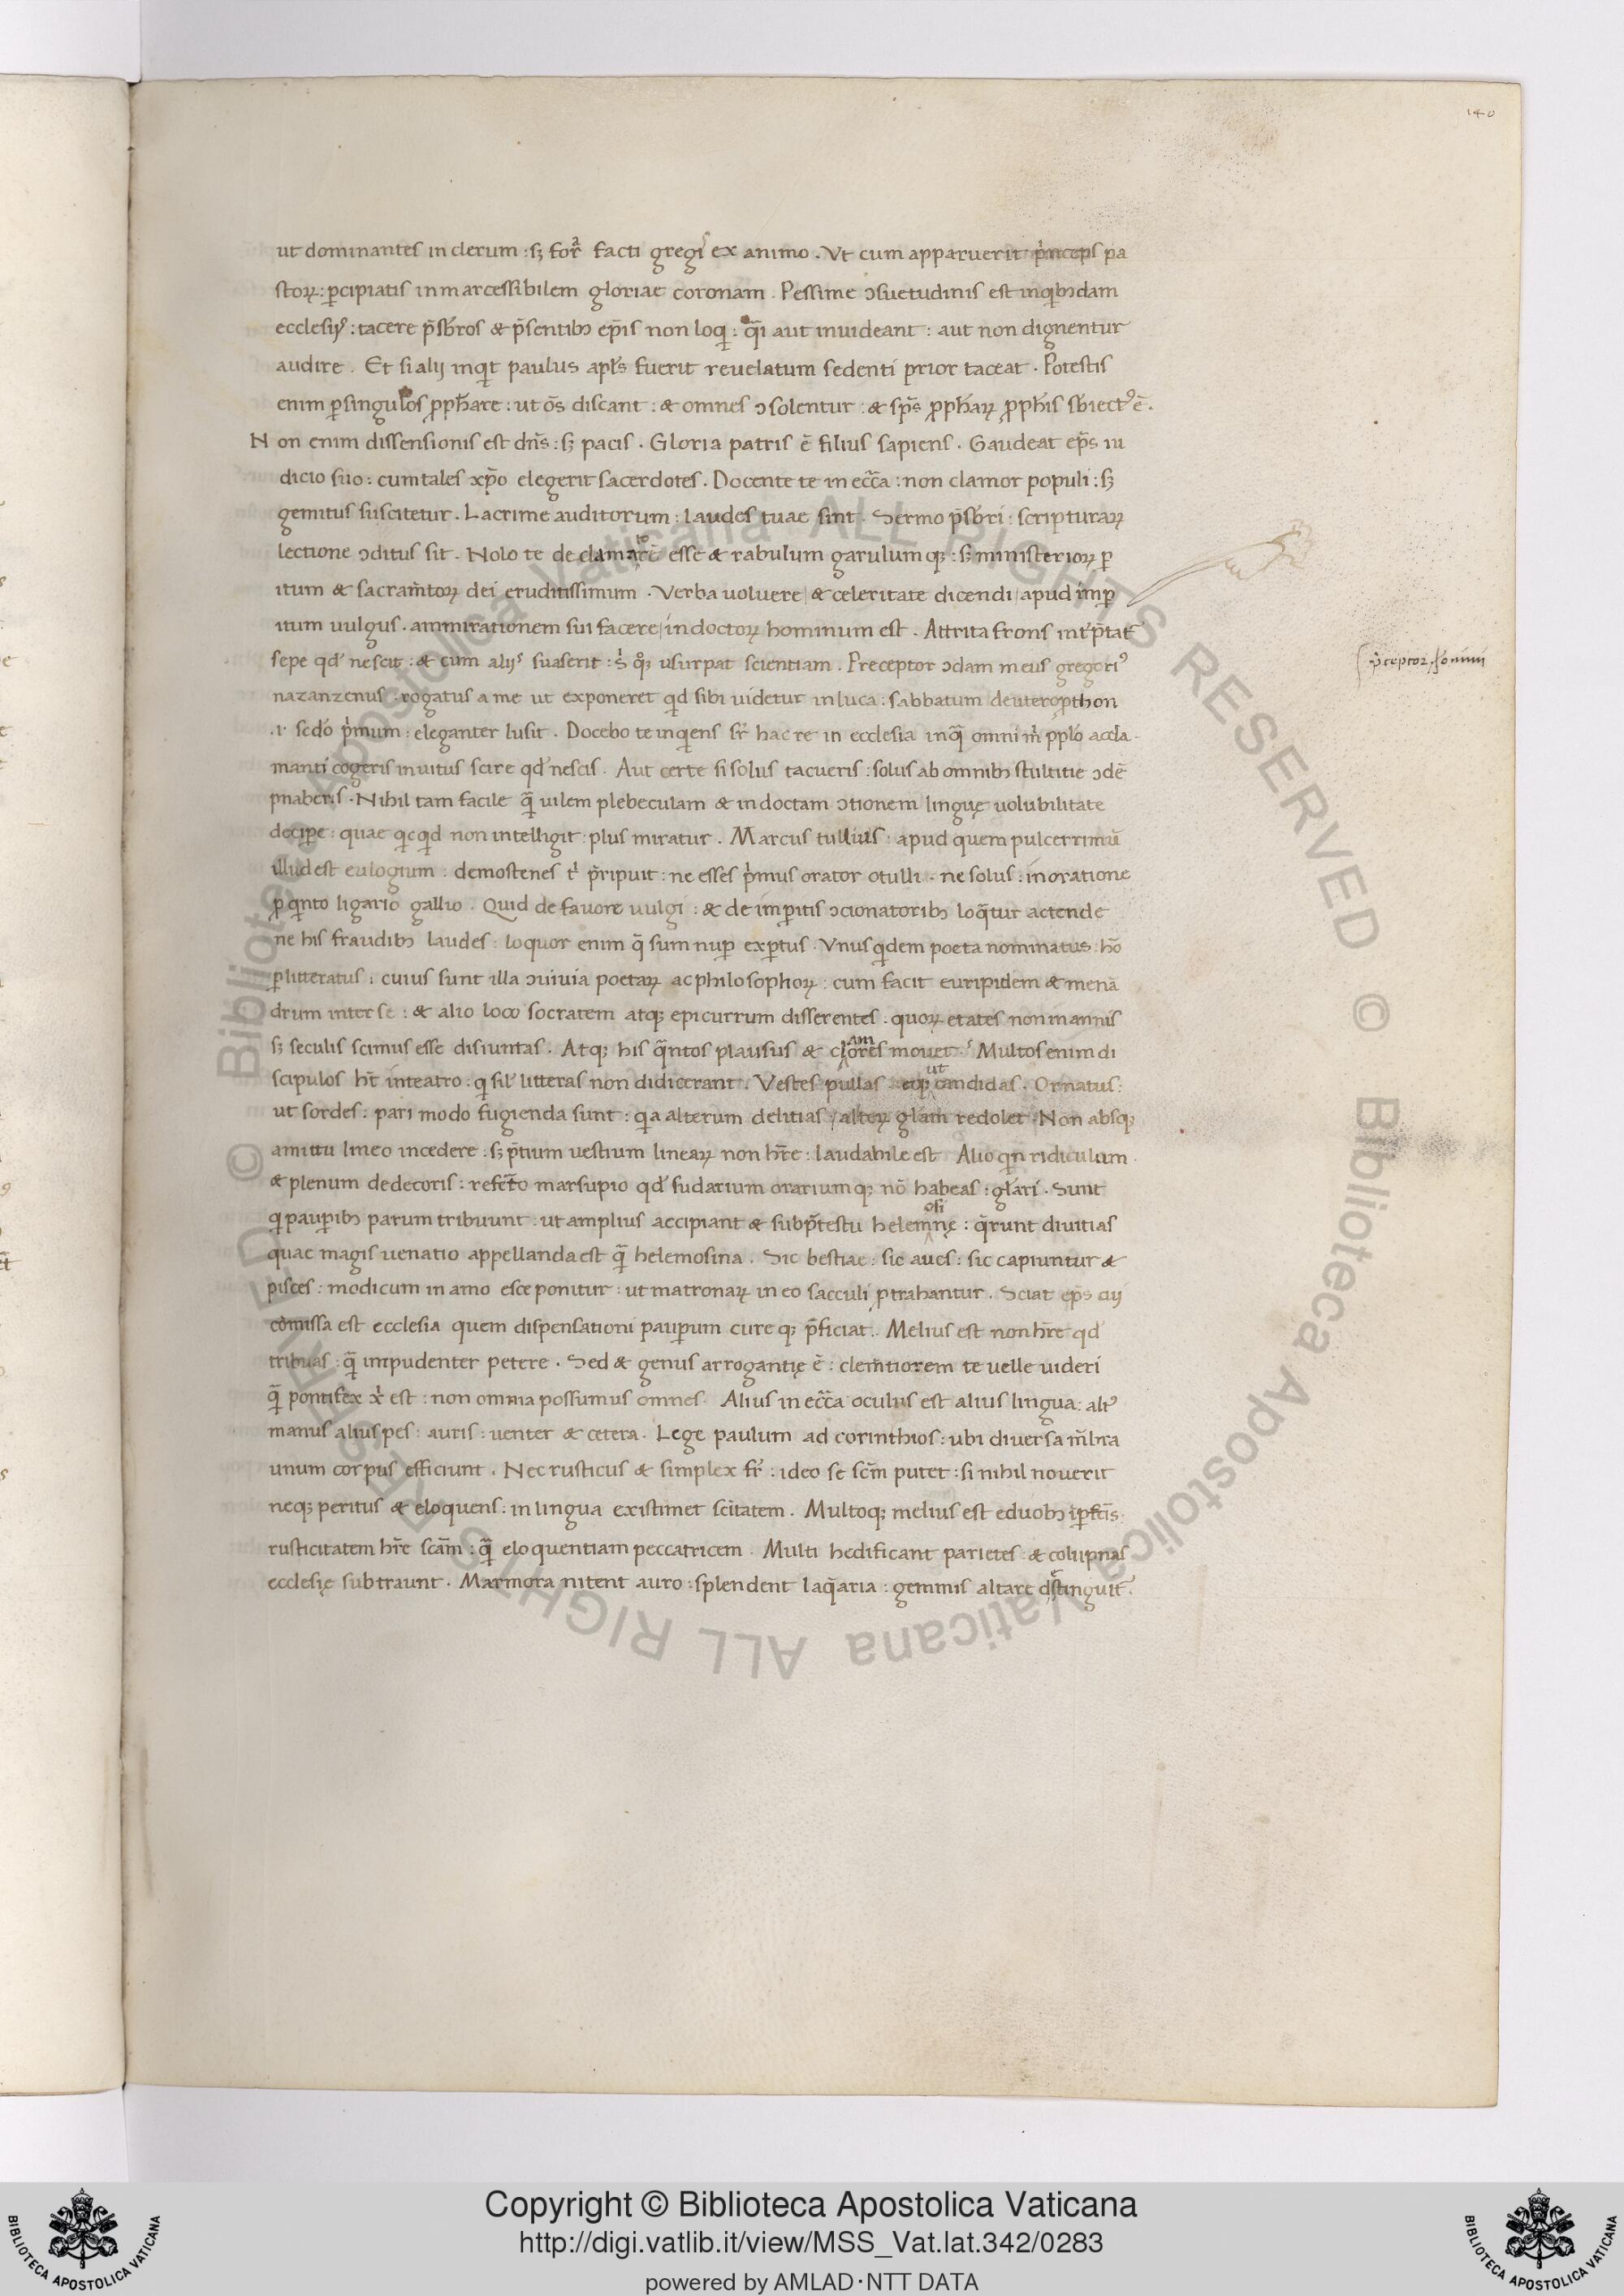 140
ut dominantes in clerum : sꝫ for̄a facti gregis ex animo . Vt cum apparuerit p̓nceps pa
stoꝝ : ꝑcipiatis inmarcessibilem gloriae coronam . Pessime ↄsuetudinis est inqͥbꝫdam
ecclesiis : tacere p̄sb̄ros & p̄sentibꝫ ep̄is non loqͥ : q̄i aut inuideant : aut non dignentur
audire . Et si alij inqͥt paulus apl̄s fuerit reuelatum sedenti prior taceat . Potestis
enim ꝑsingulos ꝓph̄are : ut om̄s discant : & omnes ↄsolentur : & sp̄s ꝓph̄aꝝ ꝓph̄is sb̄iectꝰ ē .
Non enim dissensionis est dn̄s : sꝫ pacis . Gloria patris ē filius sapiens . Gaudeat ep̄s iu
dicio suo : cum tales xp̄o elegerit sacerdotes . Docente te in ecc̄a : non clamor populi : sꝫ
gemitus suscitetur . Lacrime auditorum : laudes tuae sint . Sermo p̄sb̄ri : scripturaꝝ
lectione ↄditus sit . Nolo te declamatorē esse & rabulum garulumqꝫ : sꝫ ministerioꝝ ꝑ
itum & sacram̄toꝝ dei eruditissimum . Verba uoluere / & celeritate dicendi / apud imꝑ
itum uulgus . ammirationem sui facere / indoctoꝝ hominum est . Attrita frons int̓p̄tat̓
sepe qd̓ nescit : & cum aliis suaserit : s̓ qͦꝫ usurpat scientiam . Preceptor ↄdam meus gregoriꝰ
p̄ceptor Hieronimi
nazanzenus . rogatus a me ut exponeret qͥd sibi uidetur in luca : sabbatum deuteroꝓthon
.i. sed̄o p̓mum : eleganter lusit . Docebo te inqͥens sr̄ hac re in ecclesia inqͣ omni m̓ ppl̄o accla-
manti cogeris inuitus scire qd̓ nescis . Aut certe si solus tacueris : solus ab omnibꝫ stultitie ↄdē
pnaberis . Nihil tam facile qͣ̄ uilem plebeculam & indoctam ↄtionem linguę uolubilitate
deciꝑe : quae qͥcqͥd non intelligit : plus miratur . Marcus tullius : apud quem pulcerrimū
illud est eulogium : demostenes t̓ p̄ripuit : ne esses p̓mus orator o tulli . ne solus : in oratione
ꝓ qͥnto ligario gallio . Quid de fauore uulgi : & de imꝑitis ↄcionatoribꝫ loqͣtur actende
ne his fraudibꝫ laudes : loquor enim q̄ sum nuꝑ exꝑtus . Vnus qͥdem poeta nominatus : hō
ꝑlitteratus : cuius sunt illa ↄuiuia poetaꝝ ac philosophoꝝ : cum facit euripidem & menā
drum inter se : & alio loco socratem atqꝫ epicurrum disserentes . quoꝝ etates non in annis
sꝫ seculis scimus esse disiuntas . Atqꝫ his qͣ̄ntos plausus & clamores mouet . Multos enim di
scipulos h̄t in teatro : qͥ sil̓ litteras non didicerant . Vestes pullas ut candidas . Ornatus :
ut sordes : pari modo fugienda sunt : qͥa alterum delitias / alteꝝ gl̄am redolet . Non absqꝫ
amittu lineo incedere : sꝫ p̄tium uestium lineaꝝ non hr̄e : laudabile est . Alioqͥn ridiculum
& plenum dedecoris : refer̄to marsupio qd̓ sudarium orariumqꝫ nō habeas : gl̄ari . Sunt
qͥ pauꝑibꝫ parum tribuunt : ut amplius accipiant & sub p̄testu helemosinę : q̄runt diuitias
quae magis uenatio appellanda est qͣ̄ helemosina . Sic bestiae : sic aues : sic capiuntur &
pisces : modicum in amo esce ponitur : ut matronaꝝ in eo sacculi ptrahantur . Sciat ep̄s cui
cōmissa est ecclesia quem dispensationi pauꝑum cureqꝫ p̄ficiat . Melius est non hr̄e qd̓
tribuas : qͣ̄ impudenter petere . Sed & genus arrogantię ē : clem̄tiorem te uelle uideri
qͣ̄ pontifex x̓ est : non omnia possumus omnes . Alius in ecc̄a oculus est alius lingua : aliꝰ
manus alius pes : auris : uenter & cetera . Lege paulum ad corinthios : ubi diuersa m̄bra
unum corpus efficiunt . Nec rusticus & simplex fr̄ : ideo se sc̄m putet : si nihil nouerit
neqꝫ peritus & eloquens : in lingua existimet sc̄itatem . Multoqꝫ melius est e duobꝫ iꝑfc̄is
rusticitatem hr̄e sc̄am : qͣ̄ eloquentiam peccatricem . Multi hedificant parietes : & colupnas
ecclesię subtraunt . Marmora nitent auro : splendent laq̄aria : gemmis altare distinguit̓ .
Copyright © Biblioteca Apostolica Vaticana
http://digi.vatlib.it/view/MSS_Vat.lat.342/0283
powered by AMLAD·NTT DATA
BIBLIOTECA APOSTOLICA VATICANA
BIBLIOTECA APOSTOLICA VATICANA
© Biblioteca Apostolica Vaticana ALL RIGHTS RESERVED © Biblioteca Apostolica Vaticana ALL RIGHTS RESERVED